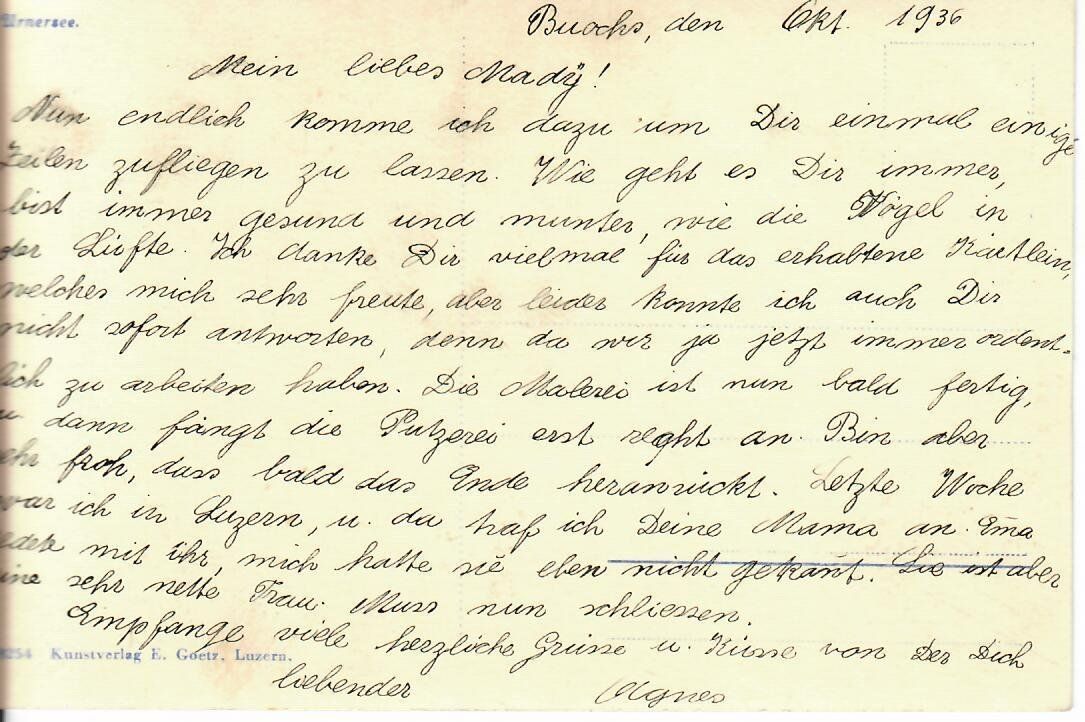 Urnersee.
Buochs, den Okt. 1936
Mein liebes Mady!
Nun endlich komme ich dazu um Dir einmal einige
Zeilen zufliegen zu lassen. Wie geht es Dir immer,
bist immer gesund und munter, wie die Vögel in
der Lüfte. Ich danke Dir vielmal für das erhaltene Kärtlein,
welches mich sehr freute, aber leider konnte ich auch Dir
nicht sofort antworten, denn da wir ja jetzt immer ordent-
lich zu arbeiten haben. Die Malerei ist nun bald fertig,
u. dann fängt die Putzerei erst recht an. Bin aber
sehr froh, dass bald das Ende heranrückt. Letzte Woche
war ich in Luzern, u. da traf ich Deine Mama an.
mit ihr, mich hatte sie eben nicht gekannt. Sie ist aber
eine sehr nette Frau. Muss nun schliessen.
Empfange viele herzliche Grüsse u. Küsse von Der Dich
8254 Kunstverlag E. Goetz, Luzern.
liebender Agnes